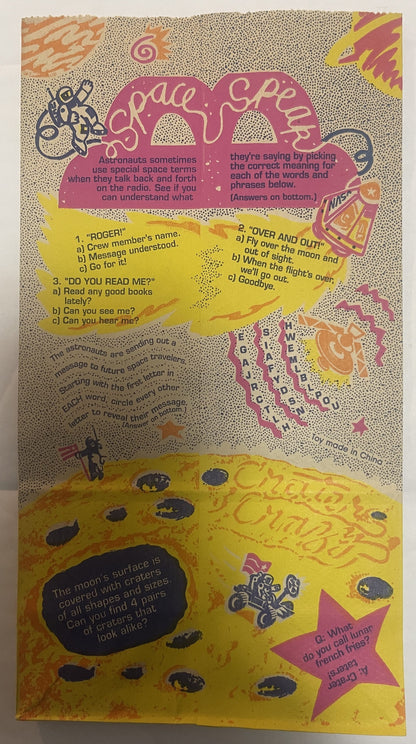 Space Speak
Astronauts sometimes
use special space terms
when they talk back and forth
on the radio. See if you
can understand what
they're saying by picking
the correct meaning for
each of the words and
phrases below.
(Answers on bottom.)
NASA
1. "ROGER!"
a) Crew member's name.
b) Message understood.
c) Go for it!
2. "OVER AND OUT!"
a) Fly over the moon and
out of sight.
b) When the flight's over,
we'll go out.
c) Goodbye.
3. "DO YOU READ ME?"
a) Read any good books
lately?
b) Can you see me?
c) Can you hear me?
The astronauts are sending out a
message to future space travelers.
Starting with the first letter in
EACH word, circle every other
letter to reveal their message.
(Answer on bottom.)
EGAJRCTLH
HWEMLBLPOU
Toy made in China
Crater
Crazy
The moon's surface is
covered with craters
of all shapes and sizes.
Can you find 4 pairs
of craters that
look alike?
Q: What
do you call lunar
french fries?
A: Crater
taters!